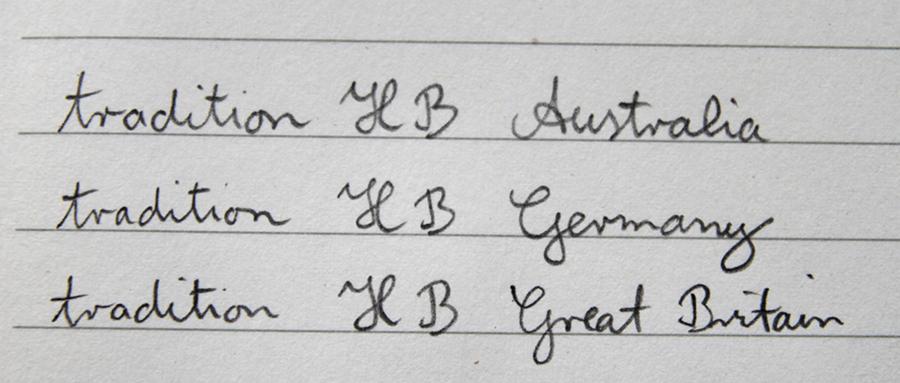 tradition HB Australia
tradition HB Germany
tradition HB Great Britain